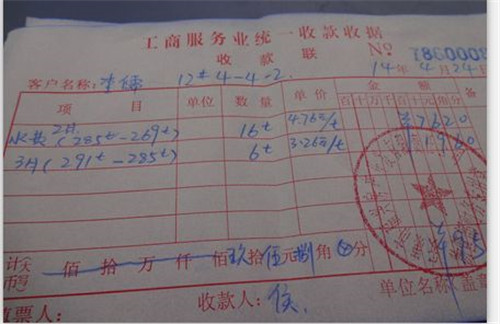 工商服务业统一收款收据
收款联 № 7860008
客户名称: 12# 4-4-2 14年4月24日
项目 单位 数量 单价 金额 备
百十万千百十元角分
水费 2月 (285t-269t) 16t 4.76元/t ¥7620
3月(291t-285t) 6t 3.26元/t 1960
佰拾万仟佰玖拾伍元捌角⊗分
收款人: 侯 单位名称(盖章
票人: